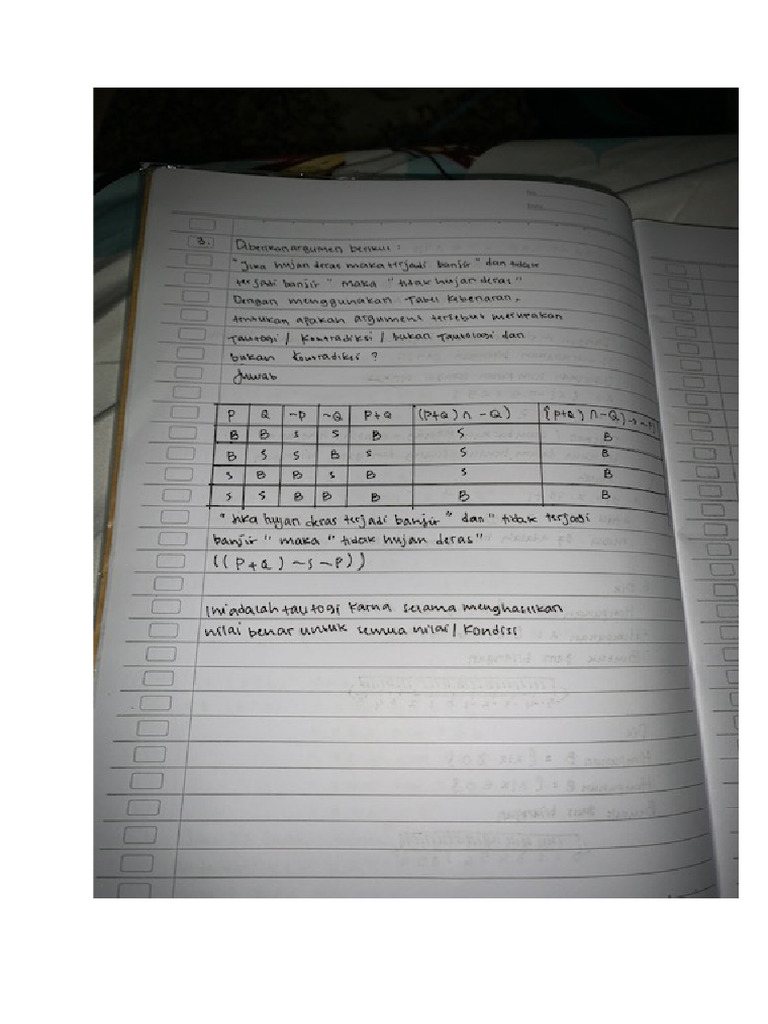 No
Date
3. Diberikan argumen berikut :
"Jika hujan deras maka terjadi banjir" dan tidak
terjadi banjir" maka "tidak hujan deras"
Dengan menggunakan Tabel Kebenaran,
tentukan apakah argument tersebut merupakan
Tautologi / Kontradiksi / bukan Tautologi dan
bukan Kontradiksi ?
Juwab
P Q ~P ~Q P+Q (P+Q) ∩ -Q) {P+Q) ∩ -Q)
B B S S B S B
B S S B S S B
S B B S B S B
S S B B B B B
"Jika hujan deras terjadi banjir" dan "tidak terjadi
banjir" maka "tidak hujan deras"
((P+Q) ~S ~P))
Ini adalah tautogi Karna selama menghasilkan
nilai benar untuk semua nilai / Kondisi